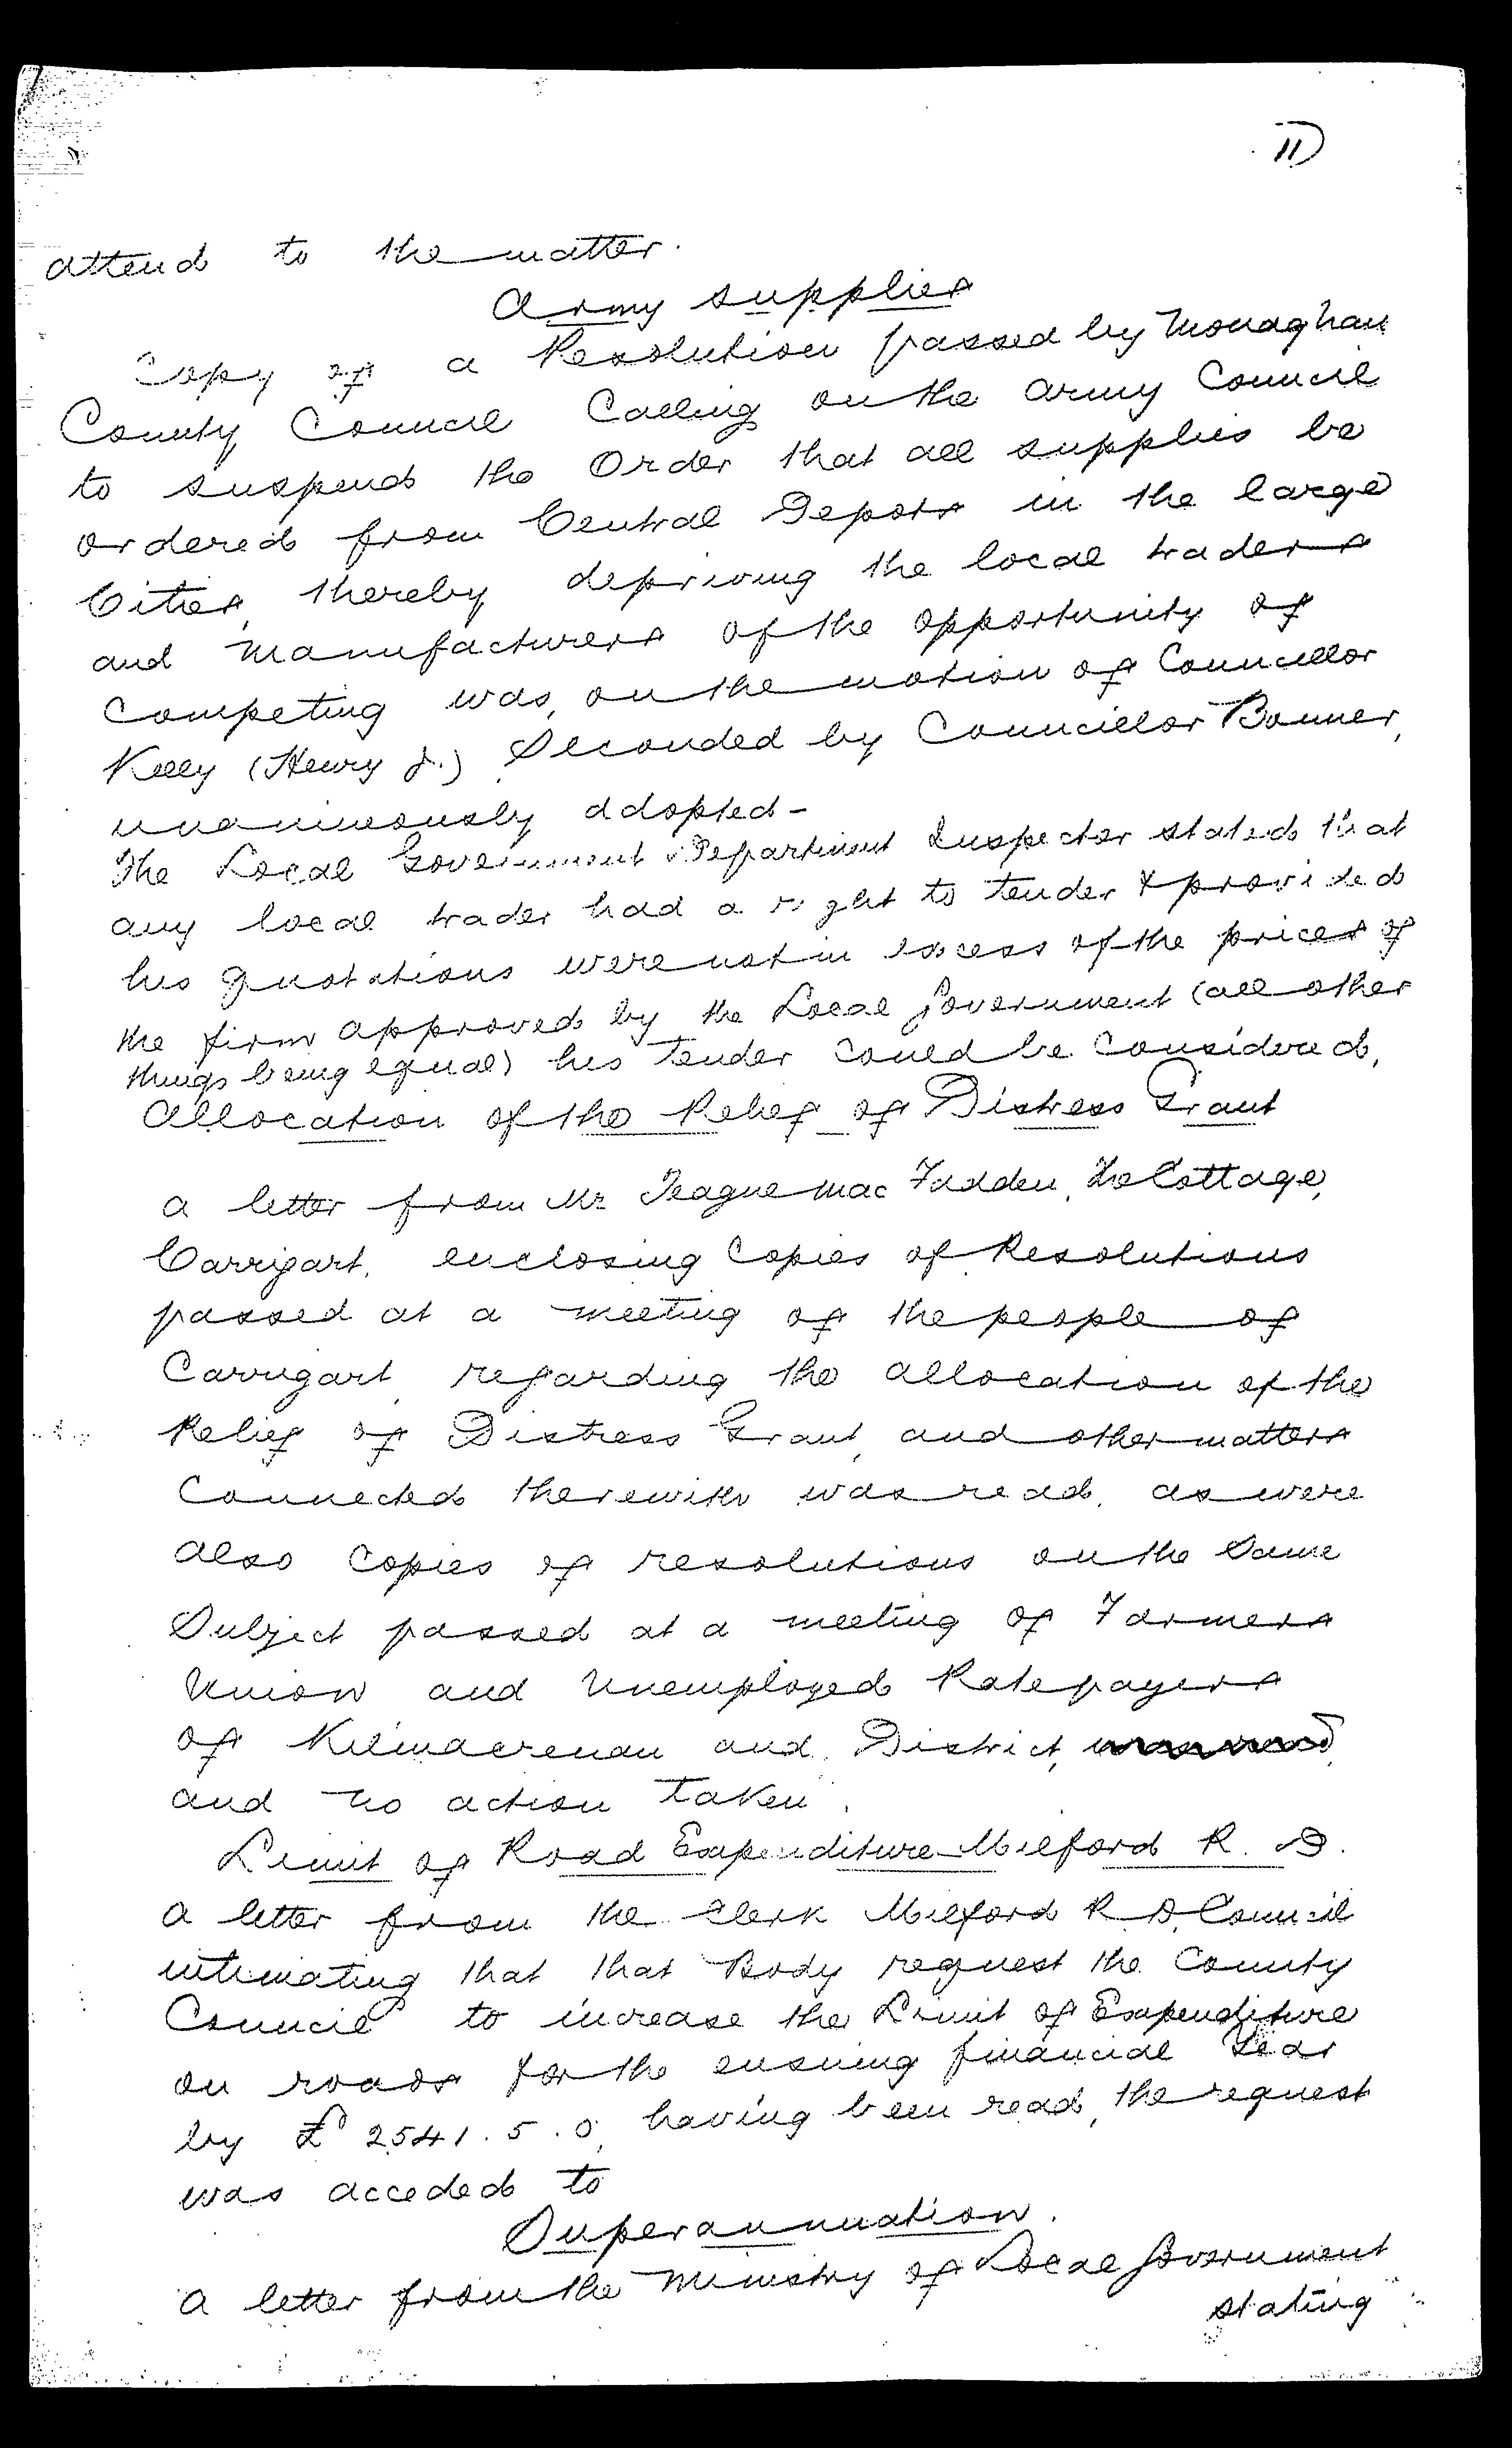 11)
attend to the matter.
Army supplies
Copy of a Resolution passed by Monaghan
County Council Calling on the Army Council
to suspend the Order that all supplies be
ordered from Central Depots in the large
Cities, thereby depriving the local traders
and manufacturers of the opportunity of
Competing was, on the motion of Councillor
Kelly (Henry J.) Seconded by Councillor Bonner,
unanimously adopted -
The Local Government Department Inspector stated that
any local trader had a right to tender & provided
his quotations were not in excess of the prices of
the firm approved by the Local Government (all other
things being equal) his tender could be considered,
Allocation of the Relief of Distress Grant
a letter from Mr Teague Mac Fadden, The Cottage,
Carrigart, enclosing Copies of Resolutions
passed at a meeting of the people of
Carrigart regarding the allocation of the
Relief of Distress Grant, and other matters
Connected therewith was read, as were
also Copies of resolutions on the Same
Subject passed at a meeting of Farmers
Union and Unemployed Ratepayers
of Kilmacrenan and District,
and no action taken.
Limit of Road Expenditure Milford R. D.
a letter from the Clerk Milford R. D. Council
intimating that that Body request the County
Council to increase the Limit of Expenditure
on roads for the ensuing financial Year
by £2541. 5. 0, having been read, the request
was acceded to
Superannuation.
a letter from the Ministry of Local Government
stating